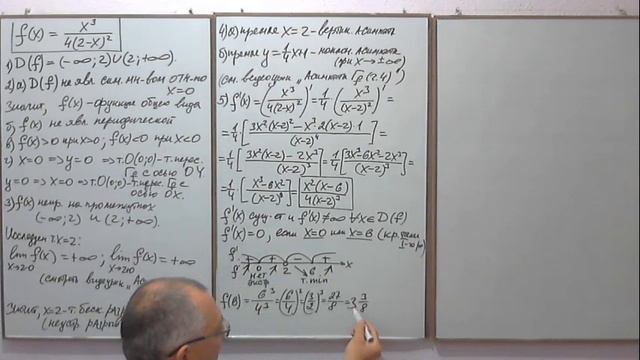 f(x) = x³/4(2-x)²
1) D(f) = (-∞; 2) ∪ (2; +∞).
2) а) D(f) не явл. сим. мн-вом отн-но
x=0
Значит, f(x) - функция общего вида
б) f(x) не явл. периодической
в) f(x)>0 при x>0; f(x)<0 при x<0
г) x=0 => y=0 => т.O(0;0) - т. перес.
Гf с осью OY
y=0 => x=0 => т.O(0;0) - т. перес. Гf с
осью OX.
3) f(x) непр. на промежутках
(-∞; 2) и (2; +∞).
Исследуем т. x=2:
lim f(x) = +∞; lim f(x) = +∞
x→2-0 x→2+0
(смотреть видеоурок „Ас
Значит, x=2 - т. беск. раз
(неустр. разрыв
4) а) прямая x=2 - вертик. асимптота
б) прямая y=1/4x+1 - наклон. асимптота
(при x→±∞)
(см. видеоурок „Асимптоты Гf (2.4)")
5) f'(x) = (x³/4(2-x)²)' = 1/4 (x³/(x-2)²)' =
= 1/4 [3x²(x-2)² - x³·2(x-2)·1/(x-2)⁴] =
= 1/4 [3x²(x-2) - 2x³/(x-2)³] = 1/4 [3x³-6x²-2x³/(x-2)³] =
= 1/4 [x³-6x²/(x-2)³] = x²(x-6)/4(x-2)³
f'(x) сущ-ет и f'(x)≠∞ ∀x∈D(f)
f'(x)=0, если x=0 или x=6 (кр. точки
I-го р.)
f' + + - +
0 2 6 x
f нет т. min
экстр
f(6) = 6³/4³ = (6/4)³ = (3/2)³ = 27/8 = 3 3/8